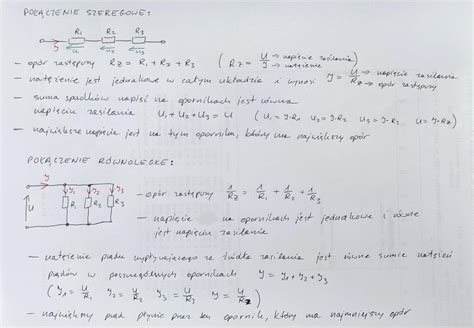 POŁĄCZENIE SZEREGOWE:
R1 R2 R3
J U1 U2 U3
- opór zastępczy RZ = R1 + R2 + R3 ( RZ = U/J → napięcie zasilania → natężenie )
- natężenie jest jednakowe w całym układzie i wynosi J = U/RZ → napięcie zasilania → opór zastępczy
- suma spadków napięć na opornikach jest równa
napięciu zasilania U1 + U2 + U3 = U ( U1 = J·R1 U2 = J·R2 U3 = J·R3 U = J·RZ )
- największe napięcie jest na tym oporniku, który ma największy opór
POŁĄCZENIE RÓWNOLEGŁE:
J J1 J2 J3
U R1 R2 R3
- opór zastępczy 1/RZ = 1/R1 + 1/R2 + 1/R3
- napięcie na opornikach jest jednakowe i równe
jest napięciu zasilania
- natężenie prądu wypływającego ze źródła zasilania jest równe sumie natężeń
prądów w poszczególnych opornikach J = J1 + J2 + J3
( J1 = U/R1 J2 = U/R2 J3 = U/R3 J = U/RZ )
- największy prąd płynie przez ten opornik, który ma najmniejszy opór